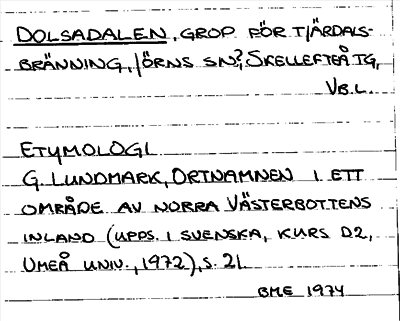 DOLSADALEN, GROP FÖR TJÄRDALS-
BRÄNNING, JÖRNS SN?, SKELLEFTEÅ TG,
VB.L.
ETYMOLOGI
G. LUNDMARK, ORTNAMNEN I ETT
OMRÅDE AV NORRA VÄSTERBOTTENS
INLAND (UPPS. I SVENSKA, KURS D2,
UMEÅ UNIV., 1972), S. 21.
BME 1974